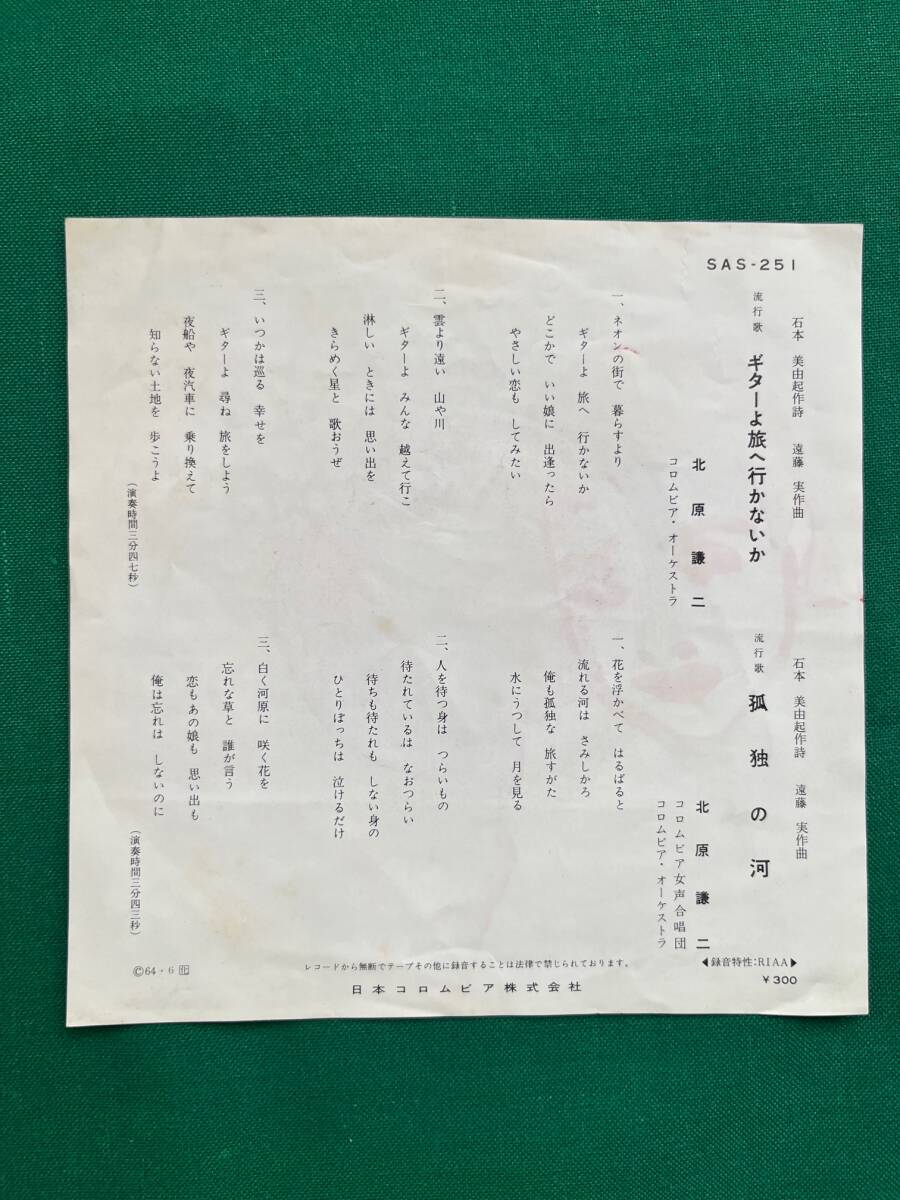 SAS-251
石本 美由起作詩 遠藤 実作曲
流行歌 ギターよ旅へ行かないか
北原謙二
コロムビア・オーケストラ
一、ネオンの街で 暮らすより
ギターよ 旅へ 行かないか
どこかで いい娘に 出逢ったら
やさしい恋も してみたい
二、雲より遠い 山や川
ギターよ みんな 越えて行こ
淋しい ときには 思い出を
きらめく星と 歌おうぜ
三、いつかは巡る 幸せを
ギターよ 尋ね 旅をしよう
夜船や 夜汽車に 乗り換えて
知らない土地を 歩こうよ
(演奏時間三分四七秒)
石本 美由起作詩 遠藤 実作曲
流行歌 孤独の河
北原謙二
コロムビア女声合唱団
コロムビア・オーケストラ
一、花を浮かべて はるばると
流れる河は さみしかろ
俺も孤独な 旅すがた
水にうつして 月を見る
二、人を待つ身は つらいもの
待たれているは なおつらい
待ちも待たれも しない身の
ひとりぼっちは 泣けるだけ
三、白く河原に 咲く花を
忘れな草と 誰が言う
恋もあの娘も 思い出も
俺は忘れは しないのに
(演奏時間三分四三秒)
◀録音特性:RIAA▶
¥300
レコードから無断でテープその他に録音することは法律で禁じられております。
日本コロムビア株式会社
©64・6